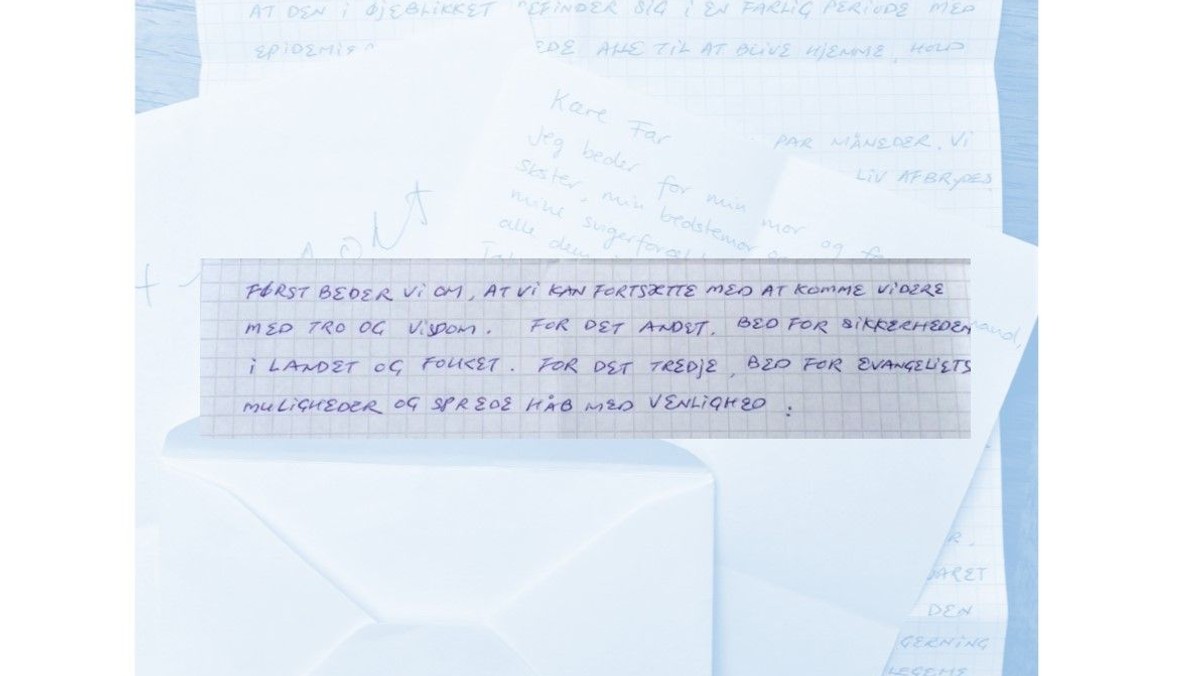 AT DEN I ØJEBLIKKET BEFINDER SIG I EN FARLIG PERIODE MED
ALLE TIL AT BLIVE HJEMME, HOLD
PAR MÅNEDER. VI
LIV AFBRYDES
Kære Far
Jeg beder for min mor og
søster, min bedstemor
mine svigerforældre
alle dem
FØRST BEDER VI OM, AT VI KAN FORTSÆTTE MED AT KOMME VIDERE
MED TRO OG VISDOM. FOR DET ANDET, BED FOR SIKKERHEDEN
I LANDET OG FOLKET. FOR DET TREDJE, BED FOR EVANGELIETS
MULIGHEDER OG SPREDE HÅB MED VENLIGHED :
DEN
GERNING
LEGEME